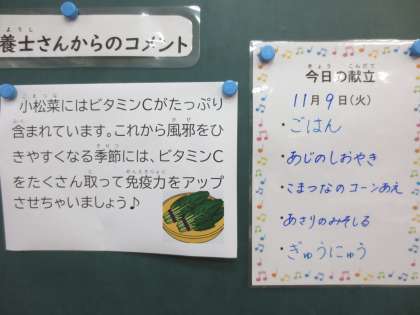 養士さんからのコメント
小松菜にはビタミンCがたっぷり
含まれています。これから風邪をひ
きやすくなる季節には、ビタミンC
をたくさん取って免疫力をアップ
させちゃいましょう♪
今日の献立
11月9日(火)
・ごはん
・あじのしおやき
・こまつなのコーンあえ
・あさりのみそしる
・ぎゅうにゅう